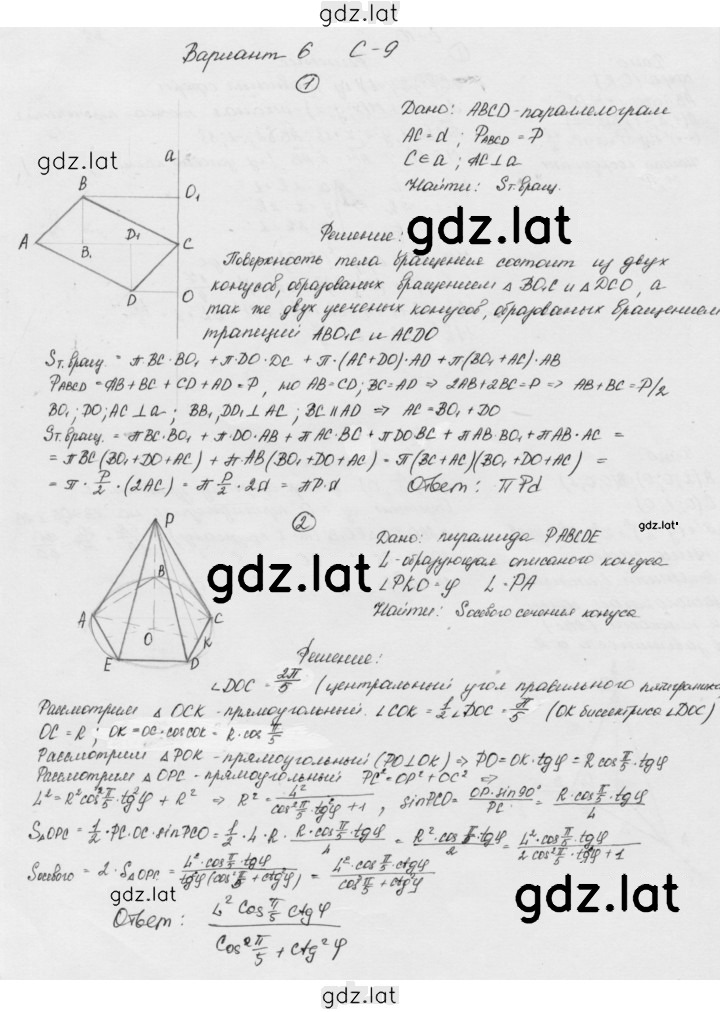 gdz.lat
Вариант 6 С-9
1
Дано: ABCD - параллелограм
AC = d ; P_ABCD = P
C ∈ a ; AC ⊥ a
Найти: Sт.вращ.
gdz.lat
a
B
O₁
A
B₁
D₁
C
D
O
gdz.lat
Решение:
Поверхность тела вращения состоит из двух
конусов, образованых вращением △ BO₁C и △ DCO, а
так же двух усеченых конусов, образованых вращением
трапеций ABO₁C и ACDO
Sт.вращ. = π·BC·BO₁ + π·DO·DC + π·(AC+DO)·AD + π(BO₁+AC)·AB
P_ABCD = AB+BC+CD+AD = P, но AB=CD; BC=AD ⇒ 2AB+2BC=P ⇒ AB+BC=P/2
BO₁; DO; AC ⊥ a ; BB₁, DD₁ ⊥ AC ; BC ∥ AD ⇒ AC = BO₁+DO
Sт.вращ. = πBC·BO₁ + π·DO·AB + πAC·BC + πDO·BC + πAB·BO₁ + πAB·AC =
= πBC(BO₁+DO+AC) + π·AB(BO₁+DO+AC) = π(BC+AC)(BO₁+DO+AC) =
= π·P/2·(2AC) = π P/2·2d = πP·d Ответ: πPd
2
gdz.lat
Дано: пирамида PABCDE
L - образующая описаного конуса
∠PKO = φ L = PA
Найти: Sосевого сечения конуса
P
B
A
C
O
K
E
D
gdz.lat
Решение:
∠DOC = 2π/5 (центральный угол правильного пятиугольника)
Рассмотрим △ OCK - прямоугольный. ∠COK = 1/2 ∠DOC = π/5 (OK биссектриса ∠DOC)
OC = R ; OK = OC·cosCOK = R·cos π/5
Рассмотрим △ POK - прямоугольный (PO⊥OK) ⇒ PO = OK·tgφ = R cos π/5·tgφ
Рассмотрим △ OPC - прямоугольный PC² = OP² + OC² ⇒
L² = R²cos² π/5·tg²φ + R² ⇒ R² = L²/(cos² π/5·tg²φ + 1) , sinPCO = OP·sin90°/PC = R·cos π/5·tgφ/L
S△OPC = 1/2·PC·OC·sinPCO = 1/2·L·R·R·cos π/5·tgφ/L = R²·cos π/5·tgφ/2 = L²·cos π/5·tgφ/(2 cos² π/5·tg²φ + 1)
Sосевого = 2·S△OPC = L²·cos π/5·tgφ/(tg²φ(cos² π/5 + ctg²φ)) = L²·cos π/5·ctgφ/(cos² π/5 + ctg²φ)
gdz.lat
Ответ: L² cos π/5 ctgφ/(cos² π/5 + ctg²φ)
gdz.lat
gdz.lat